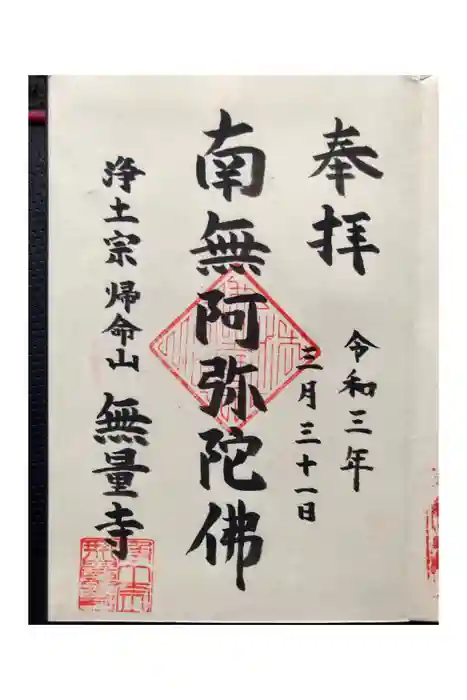 奉拝
令和三年
三月三十一日
南無阿弥陀佛
浄土宗帰命山
無量寺